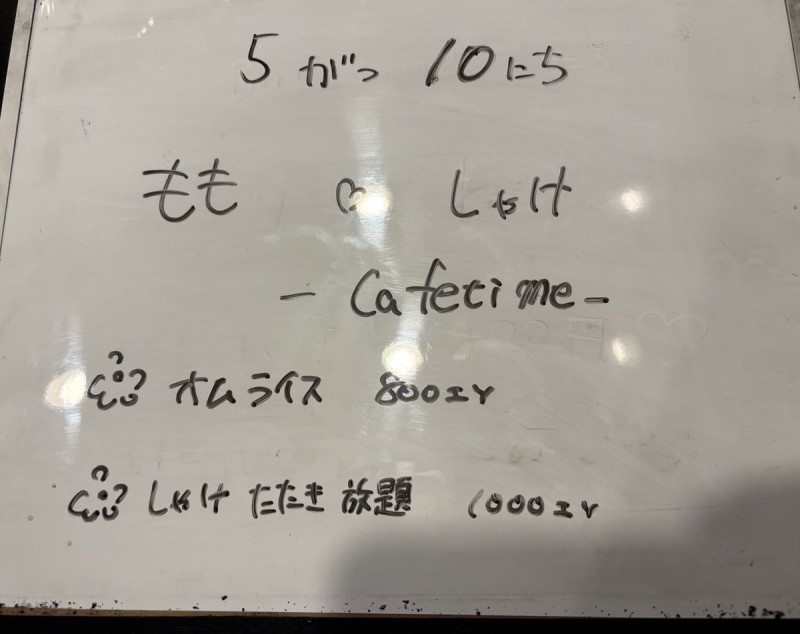 5がつ 10にち
もも ♡ しゃけ
- Cafetime -
オムライス 800エン
しゃけ たたき 放題 1000エン